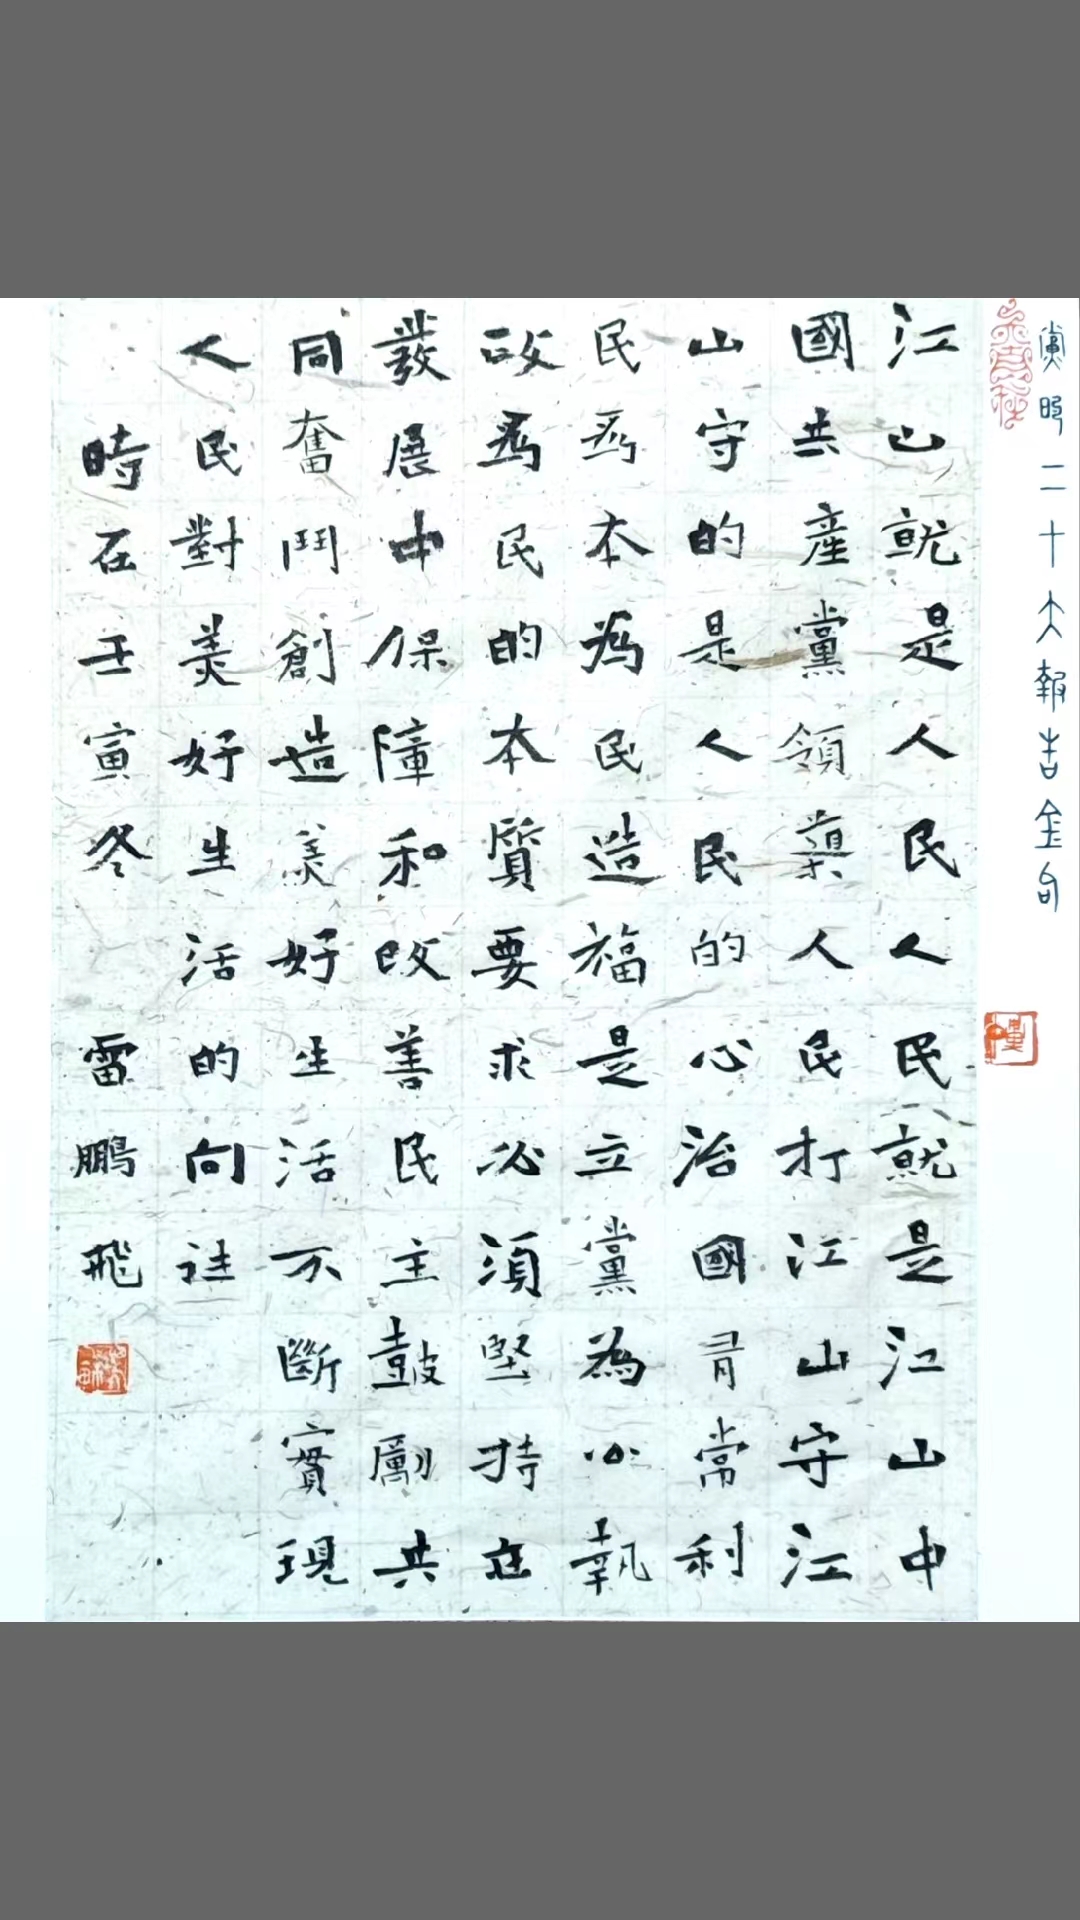 黨旳二十大報告金句
江山就是人民人民就是江山中
國共產黨領導人民打江山守江
山守的是人民的心治國有常利
民爲本為民造福是立黨為公執
政爲民的本質要求必須堅持在
發展中保障和改善民主鼓勵共
同奮鬥創造美好生活不斷實現
人民對美好生活的向往
時在壬寅冬 雷鵬飛